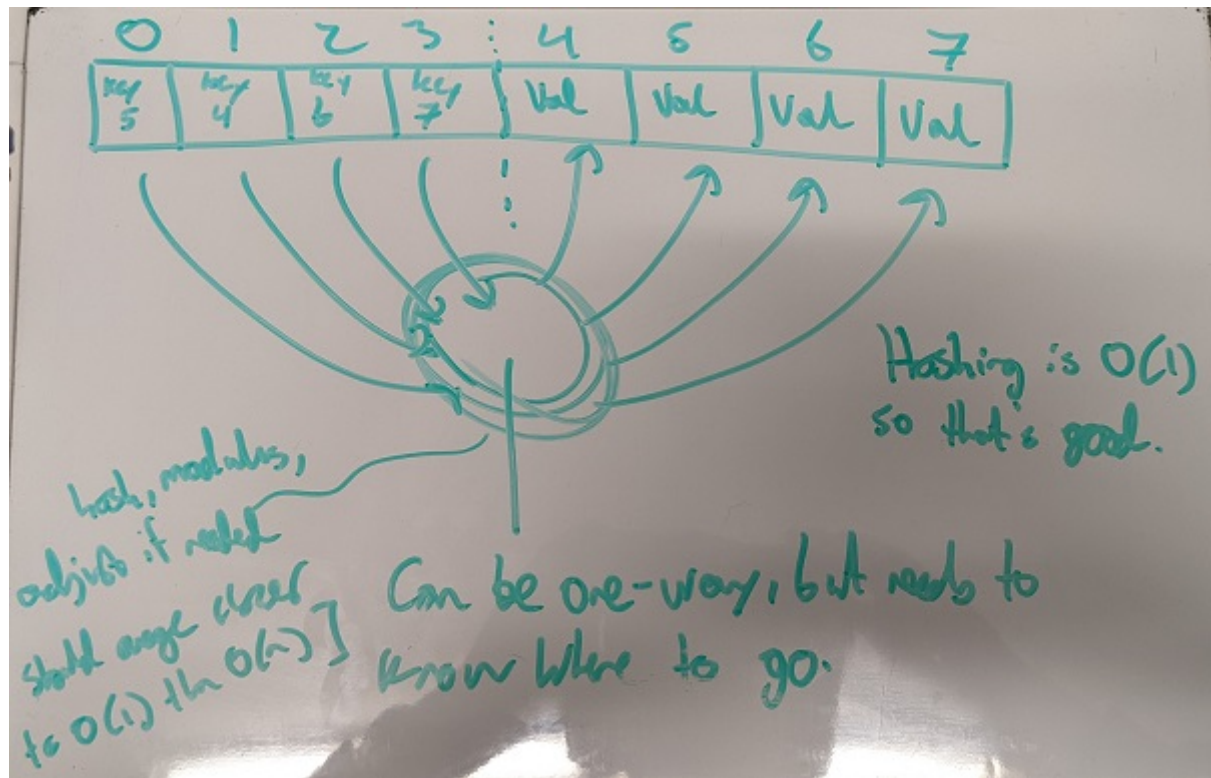 0 1 2 3 4 5 6 7
key 5 key 4 key 6 key 7 Val Val Val Val
Hashing is O(1)
so that's good.
hash, modulus,
adjust if needed
should avge closer
to O(1) than O(n)]
Can be one-way, but needs to
know where to go.